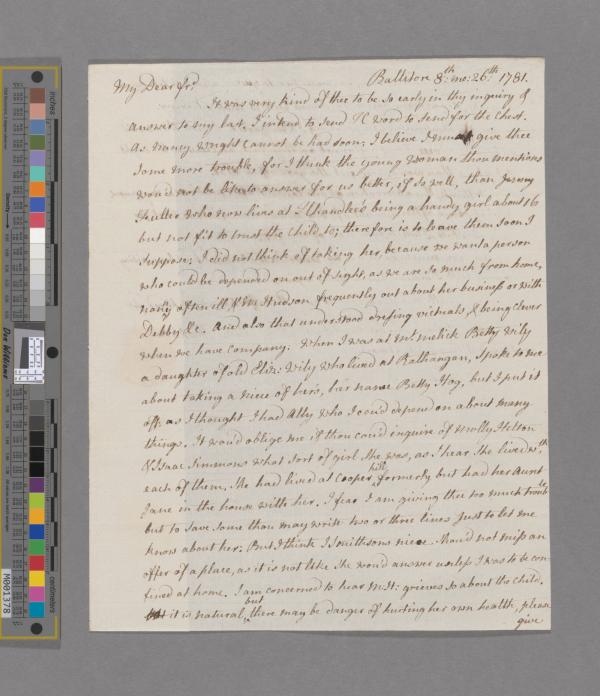 Ballitore 8th mo: 26th 1781.
My Dear frd
It was very kind of thee to be so early in thy inquiry &
answer to my last. I intend to send word to send for the Chest.
As Nancy Wright cannot be had soon; I believe I must give thee
some more trouble, for I think the young woman thou mentions
would not be like to answer for us better, if so well, than
who now lives at being a handy girl about 16
but not fit to trust the child to; therefore is to leave them soon I
suppose; I did not think of taking her, because we want a person
who could be depended on out of sight, as we are so much from home,
nancy often ill & M Hudson frequently out about her business or with
Debby &c. And also that understood dressing victuals, & being clever
when we have company. When I was at mt. melick Betty Wily
a daughter of old Eliz: Wily who lived at Rathangan, spoke to me
about taking a niece of hers, her name Betty Hog, but I put it
off, as I thought I had Abby who I could depend on about many
things. It would oblige me if thou could inquire of Molly Helton
& Isaac Simmons what sort of girl she was, as I hear she lived wth
each of them. She had lived at Cooper hill formerly but had her Aunt
Jane in the house with her. I fear I am giving thee too much trouble
but to save some thou may write two or three lines just to let me
know about her. But I think niece should not miss an
offer of a place, as it is not like she would answer unless I was to be con
fined at home. I am concerned to hear grieves so about the child.
it is natural, but there may be danger of hurting her own health, please
give
inches
centimetres
Don Williams
M001378